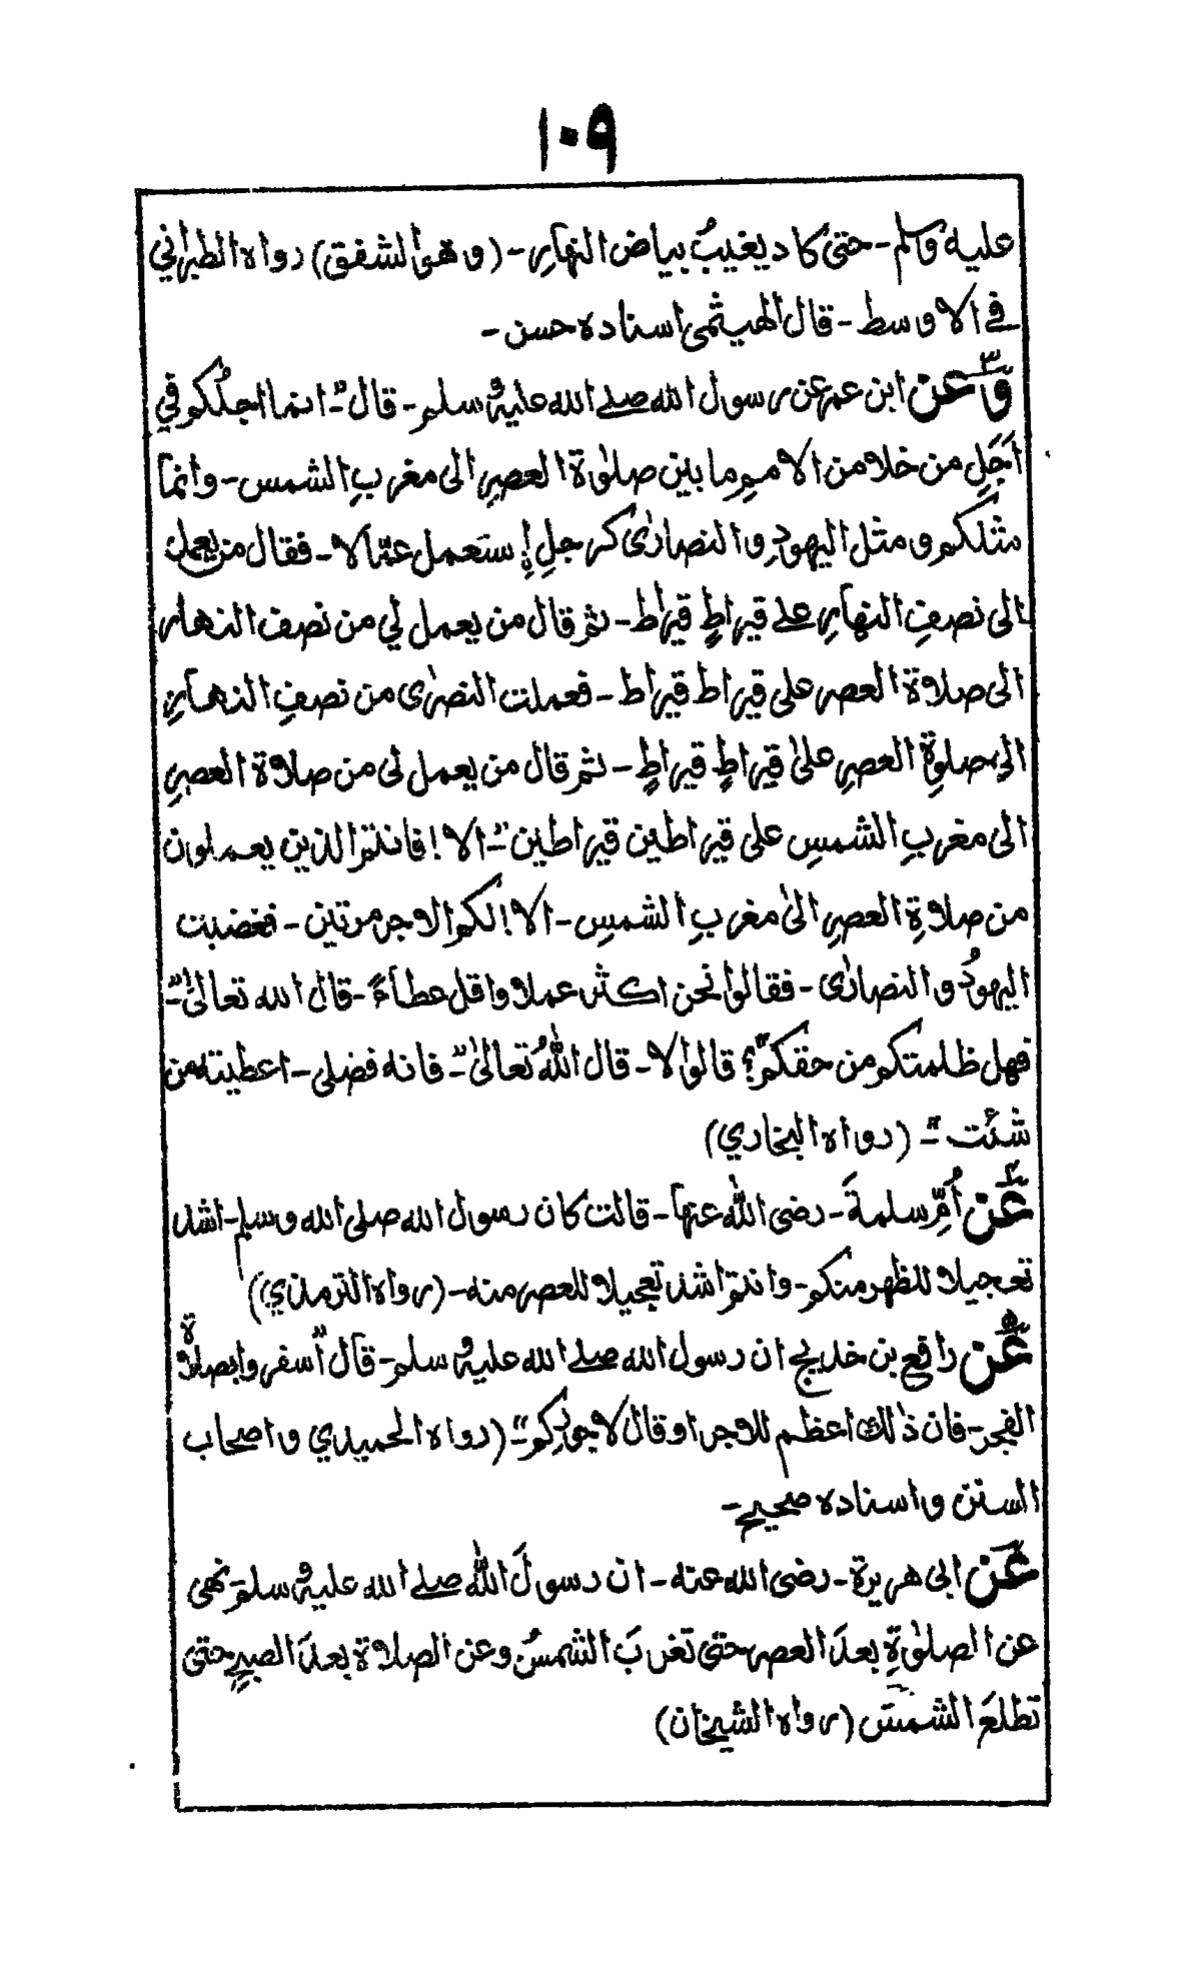 ١٠٩
عليه وسلم - حتى كاد يغيبُ بياض النهارِ - (وهو الشفق) رواه الطبراني
في الاوسط - قال الهيثمى اسناده حسن -
وَعَن ابن عمر عن رسول الله صلے الله عليه وسلم - قال "- انما اجلُكم في
اَجَلِ من خلا من الامم ما بين صلوٰة العصرِ الى مغربِ الشمس - وانما
مثلكم ومثل اليهودِ والنصارىٰ كرجلٍ! ستعمل عمّالا - فقال من يعمل
الى نصفِ النهارِ علے قيراطٍ قيراط - ثم قال من يعمل لي من نصف النهار
الى صلاة العصر على قيراط قيراط - فعملت النصرٰى من نصفِ النهارِ
الى صلوةِ العصرِ علىٰ قيراطٍ قيراطٍ - ثم قال من يعمل لى من صلاة العصرِ
الى مغربِ الشمسِ على قيراطين قيراطين "- الا! فانتم الذين يعملون
من صلاةِ العصرِ الىٰ مغربِ الشمسِ - الا! لكم الاجر مرتين - فغضبت
اليهودُ والنصارٰى - فقالوا نحن اكثر عملا واقل عطاءً - قال الله تعالىٰ "-
فهل ظلمتكم من حقكم"؟ قالوا لا - قال اللهُ تعالىٰ "- فانه فضلى - اعطيته من
شئت "- (رواه البخاري)
عَن اُمِّ سلمةَ - رضى الله عنها - قالت كان رسول الله صلى الله وسلم - اشد
تعجيلا للظهر منكم - وانتم اشد تعجيلا للعصر منه - (رواه الترمذي)
عَن رافع بن خديج ان رسول الله صلے الله عليه وسلم - قال "اسفروا بصلاة
الفجر - فان ذٰلك اعظم للاجر او قال لاجوركم "- (رواه الحميدي واصحاب
السنن واسناده صحيح -
عَن ابى هريرة - رضى الله عنه - ان رسولَ الله صلے الله عليه وسلم نهى
عن الصلوٰةِ بعدَ العصر حتى تغربَ الشمسُ وعن الصلاة بعدَ الصبحِ حتى
تطلعَ الشمسَ (رواه الشيخان)